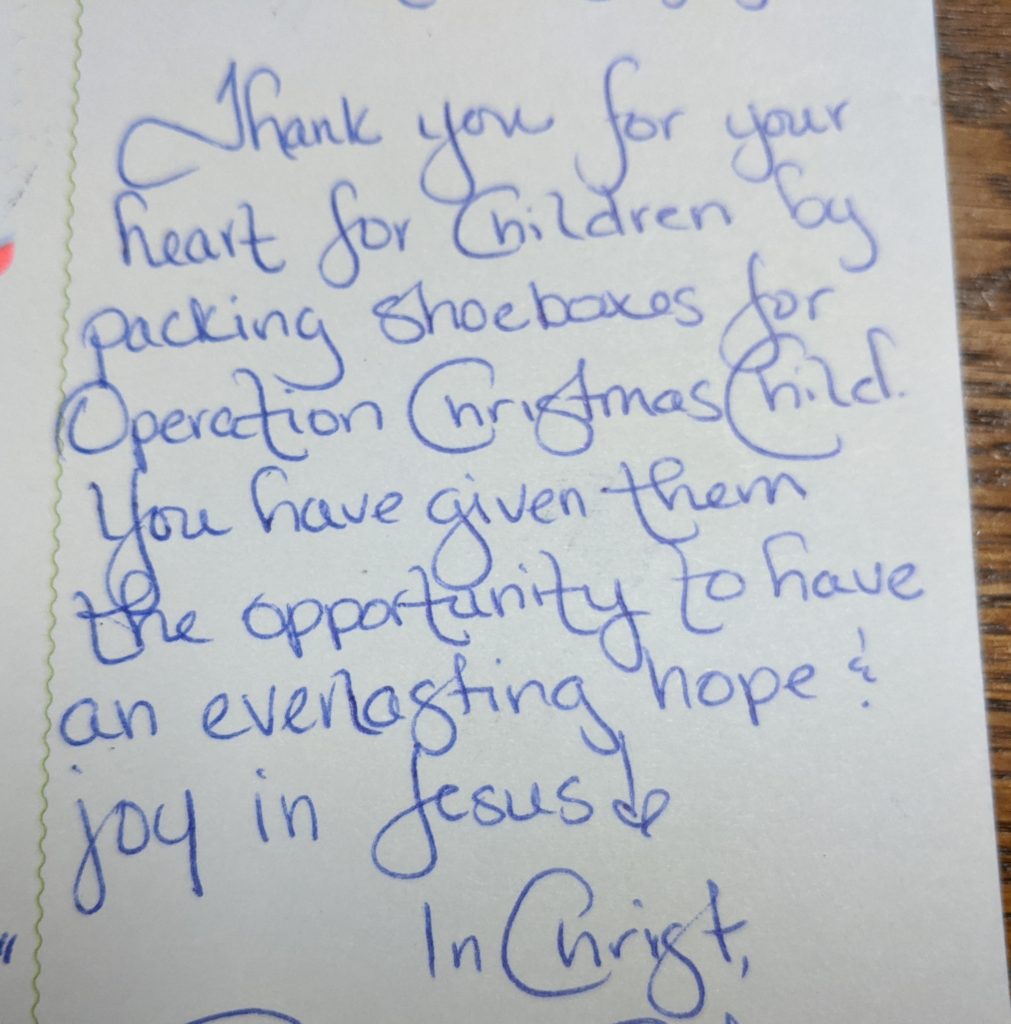 Thank you for your
heart for Children by
packing shoeboxes for
Operation Christmas Child.
You have given them
the opportunity to have
an everlasting hope &
joy in Jesus!
In Christ,